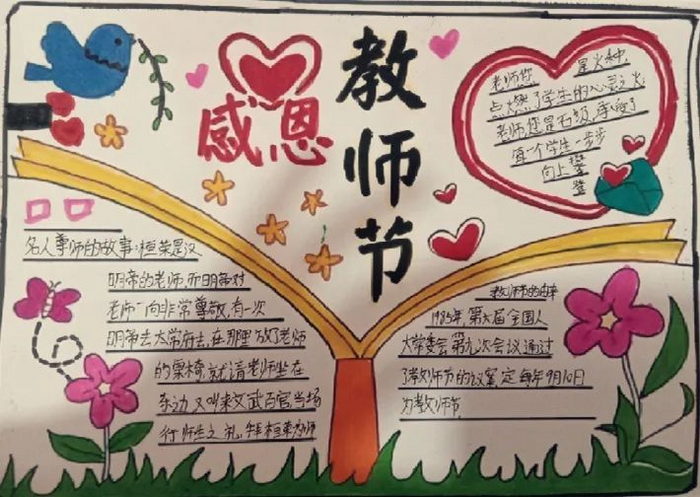 感恩
教师节
老师您 是火种
点燃了学生的心灵之火
老师您是石级,承受了
每一个学生一步步
向上攀
登
名人尊师的故事:桓荣是汉
明帝的老师,而明帝对
老师一向非常尊敬,有一次
明帝去太常府去,在那里放了老师
的桌椅,就请老师坐在
东边,又叫来文武百官,当场
行师生之礼,拜桓荣为师
教师节的由来
1985年,第六届全国人
大常委会第九次会议通过
了教师节的议案,定每年9月10日
为教师节